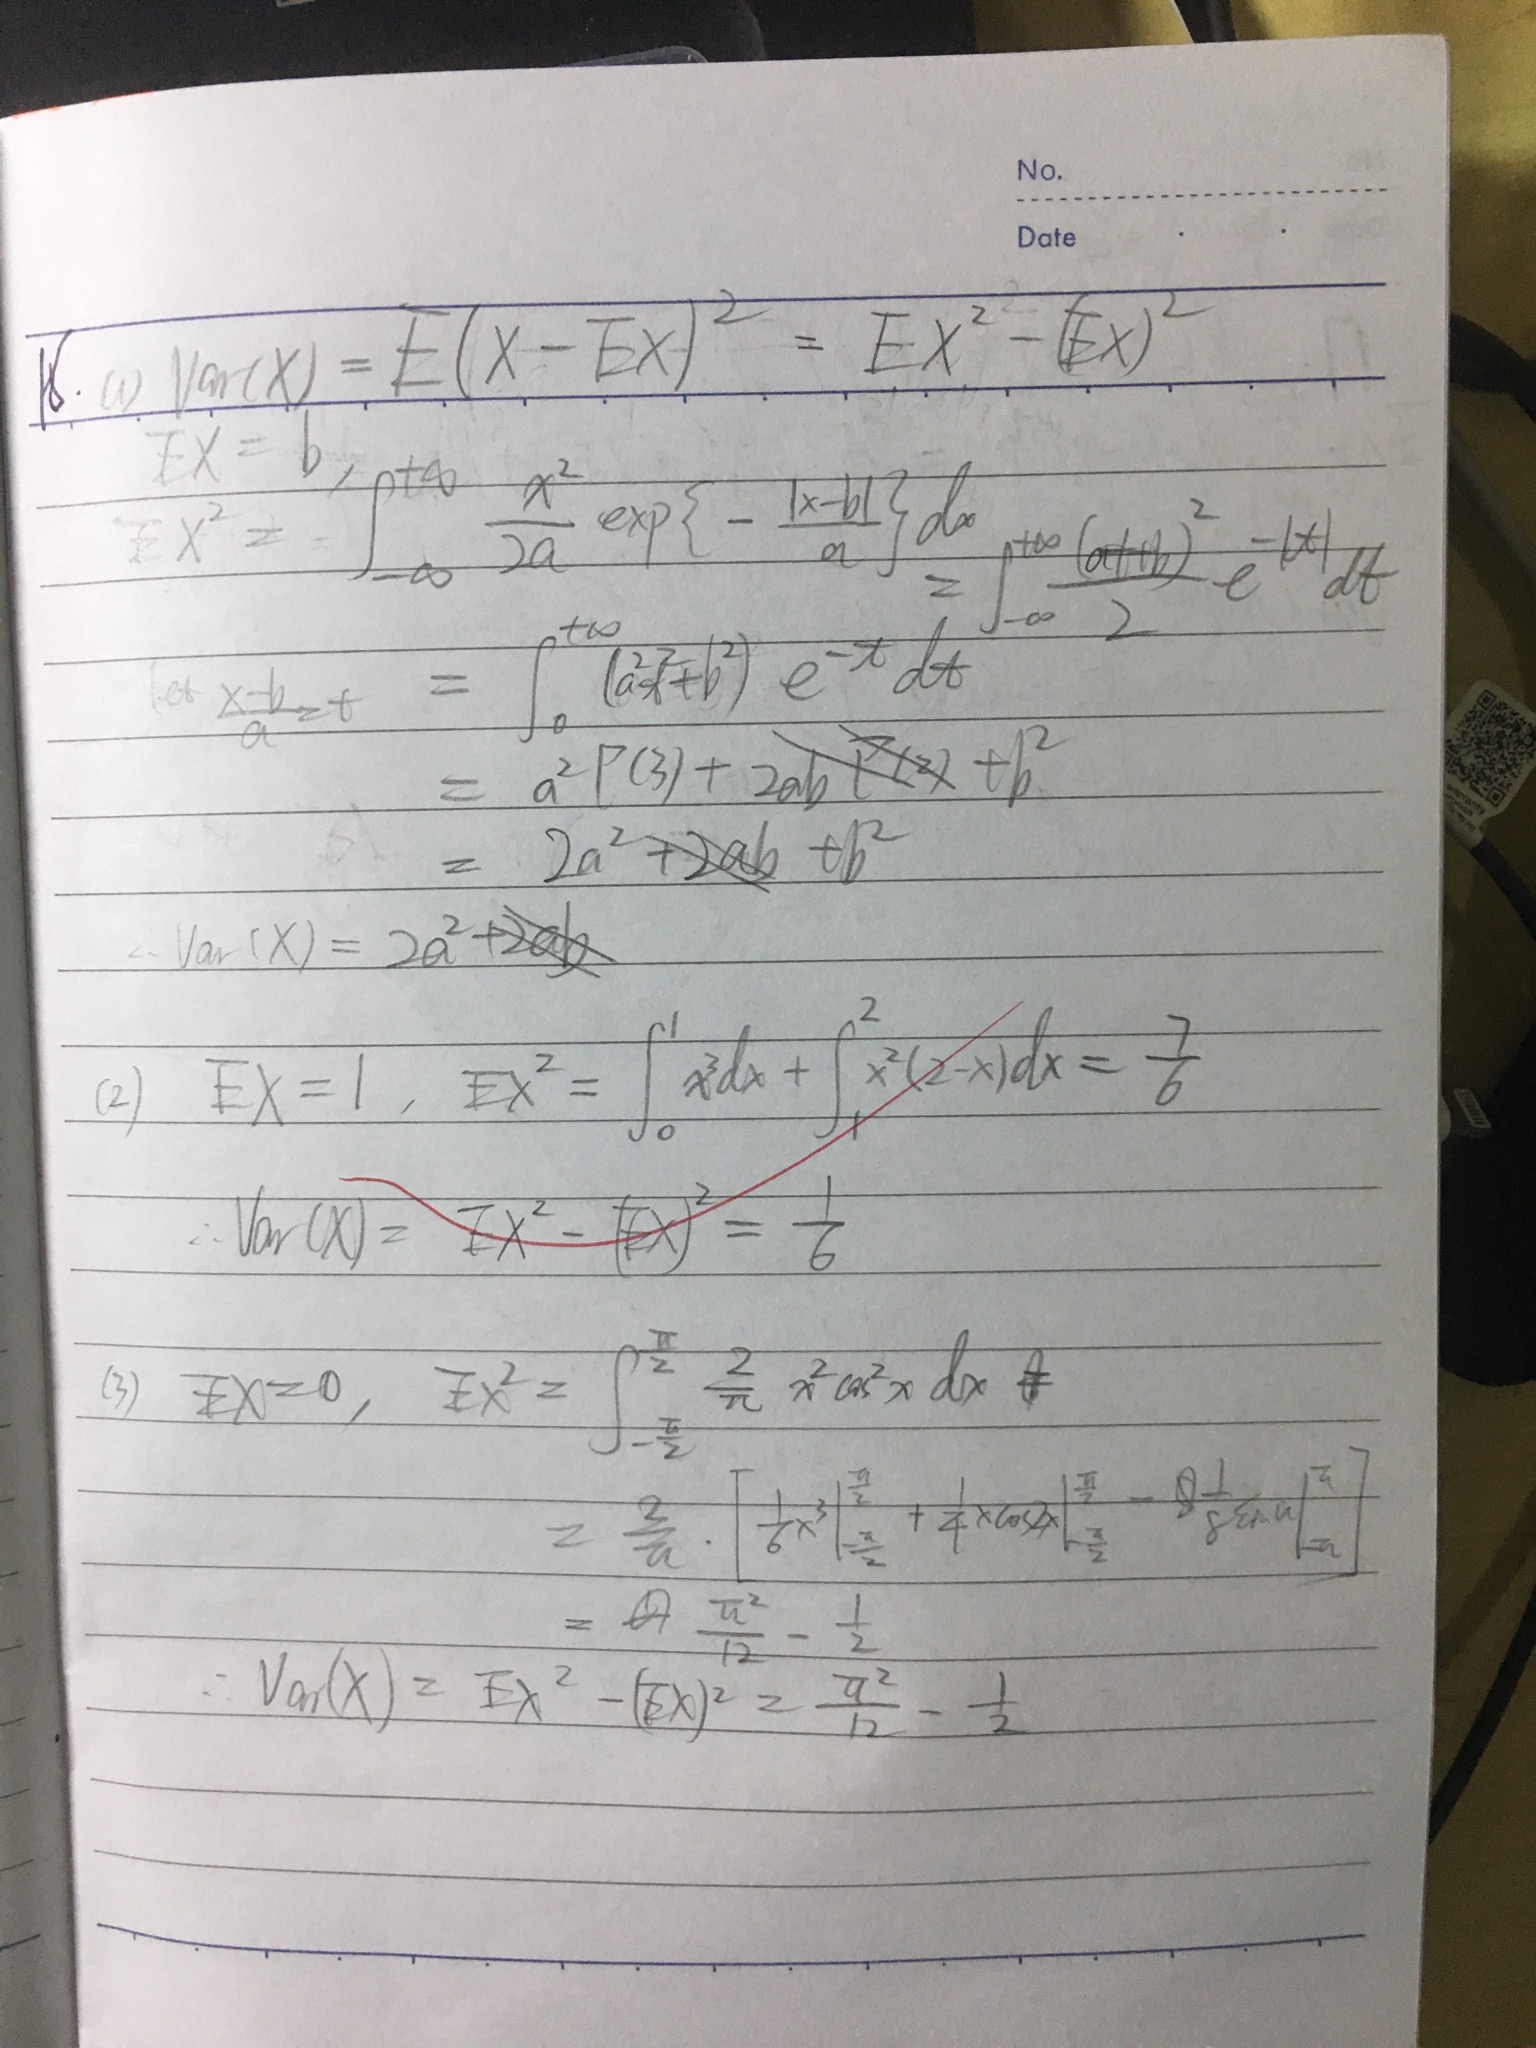 No.
Date
18. (1) Var(X) = E(X - EX)² = EX² - (EX)²
EX = b,
EX² = ∫_{-∞}^{+∞} x²/2a exp{ - |x-b|/a } dx = ∫_{-∞}^{+∞} (at+b)²/2 e^{-|t|} dt
let (x-b)/a = t = ∫_0^{+∞} (a²t²+b²) e^{-t} dt
= a² Γ(3) + 2ab Γ(2) + b²
= 2a² + 2ab + b²
∴ Var(X) = 2a² + 2ab
(2) EX = 1, EX² = ∫_0^1 x³dx + ∫_1^2 x²(2-x)dx = 7/6
∴ Var(X) = EX² - (EX)² = 1/6
(3) EX = 0, EX² = ∫_{-π/2}^{π/2} 2/π x² cos²x dx
= 2/π · [ 1/6 x³ |_{-π/2}^{π/2} + 1/4 x cos2x |_{-π/2}^{π/2} - 1/8 sin u |_{-π}^{π} ]
= π²/12 - 1/2
∴ Var(X) = EX² - (EX)² = π²/12 - 1/2
warranty